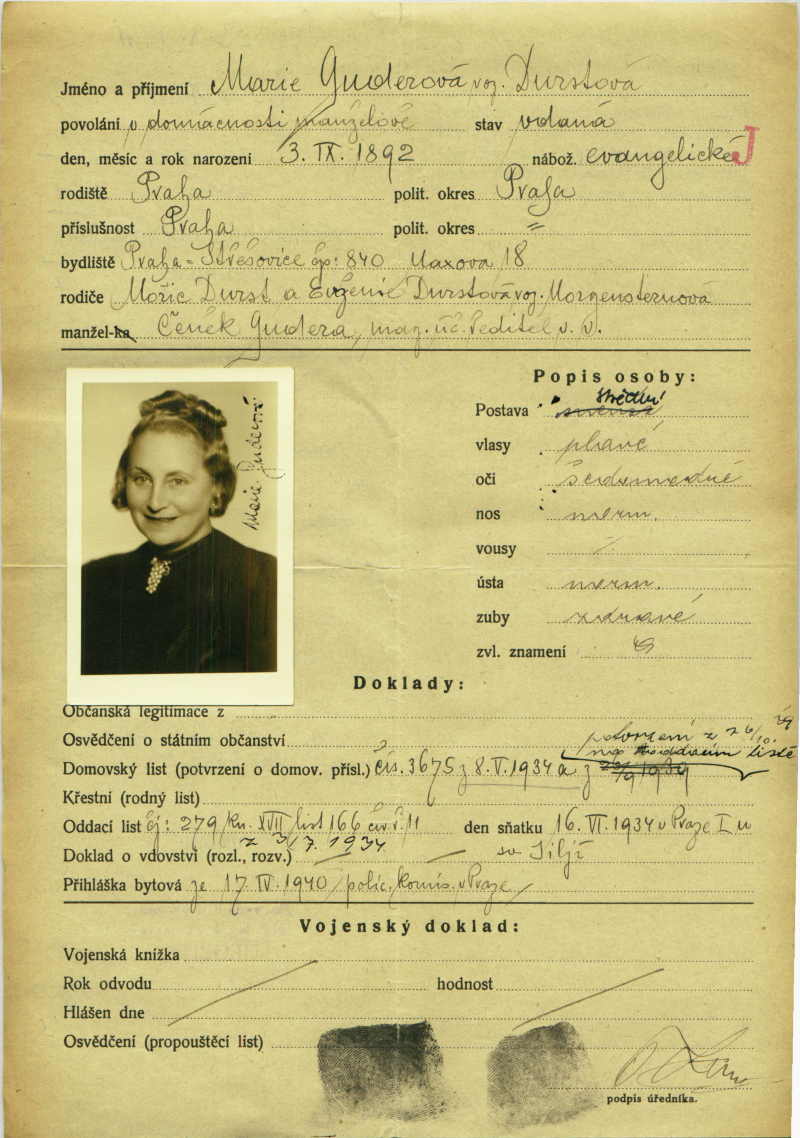 Jméno a příjmení Marie Guderová roz. Durstová
povolání v domácnosti manželově stav vdaná
den, měsíc a rok narození 3. IX. 1892 nábož. evangelické J
rodiště Praha polit. okres Praha
příslušnost Praha polit. okres "
bydliště Praha-Střešovice čp: 840 18
rodiče Mořic Durst a Evženie Durstová roz. Morgensternová
manžel-ka Čeněk Gudera, mag. úč. ředitel v. v.
Popis osoby:
Postava střední
vlasy plavé
oči šedomodré
nos norm.
vousy
ústa norm.
zuby zdravé
zvl. znamení
Marie Guderová
Doklady:
Občanská legitimace z
Osvědčení o státním občanství
potvrzení z 26/10. 39
na domovském listě
Domovský list (potvrzení o domov. přísl.) čís. 3675 z 8. V. 1934 a z 26/9 1939
Křestní (rodný list)
Oddací list čj: 279/kn. XVII/list 166 čís. ř. 11 den sňatku 16. VI. 1934 v Praze I u
z 3/7. 1934 sv Jiljí
Doklad o vdovství (rozl., rozv.)
Přihláška bytová ze 17. IV. 1940 / polic. komis. v Praze /
Vojenský doklad:
Vojenská knížka
Rok odvodu hodnost
Hlášen dne
Osvědčení (propouštěcí list)
podpis úředníka.